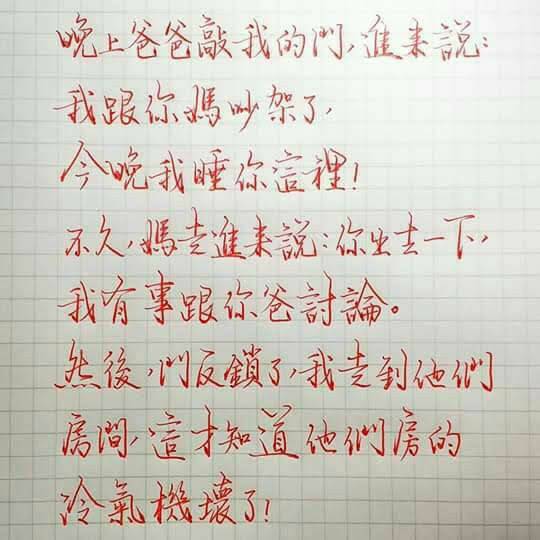 晚上爸爸敲我的門,進來說:
我跟你媽吵架了,
今晚我睡你這裡!
不久,媽走進來說:你出去一下,
我有事跟你爸討論。
然後,門反鎖了,我走到他們
房間,這才知道他們房的
冷氣機壞了!